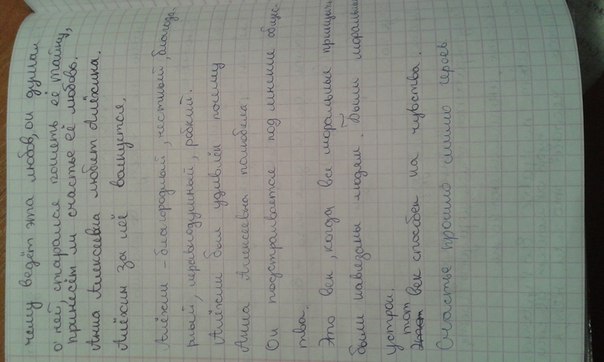 чему ведёт эта любовь, он думал
о ней, старался понять её тайну,
принесём ли счастье её любовь.
Анна Алексеевна любит Алёхина.
Алёхин за неё волнуется.
Алёхин - благородный, честный, благода-
рный, неравнодушный, робкий.
Алёхин был удивлён почему
Анна Алексеевна полюбила.
Он подстраивается под мнение общес-
тва.
Это век, когда все моральные принципы
были навязаны людям. Были моральные
устрои.
тот век способен на чувства.
Счастье прошло мимо героев